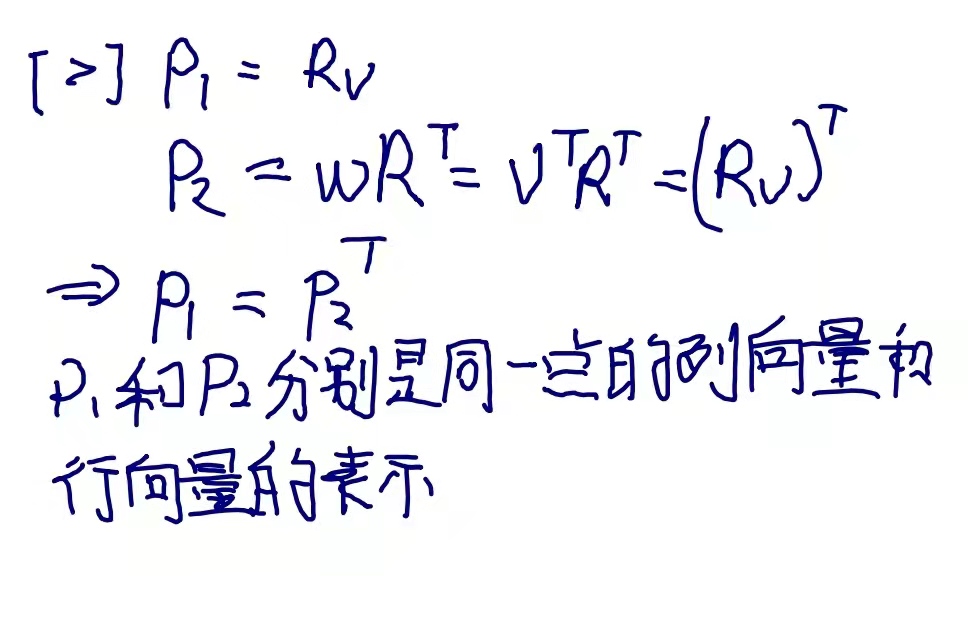 [>] P₁ = Rv
P₂ = wRᵀ = vᵀRᵀ = (Rv)ᵀ
⇒ P₁ = P₂ᵀ
P₁和P₂分别是同一点的列向量和
行向量的表示